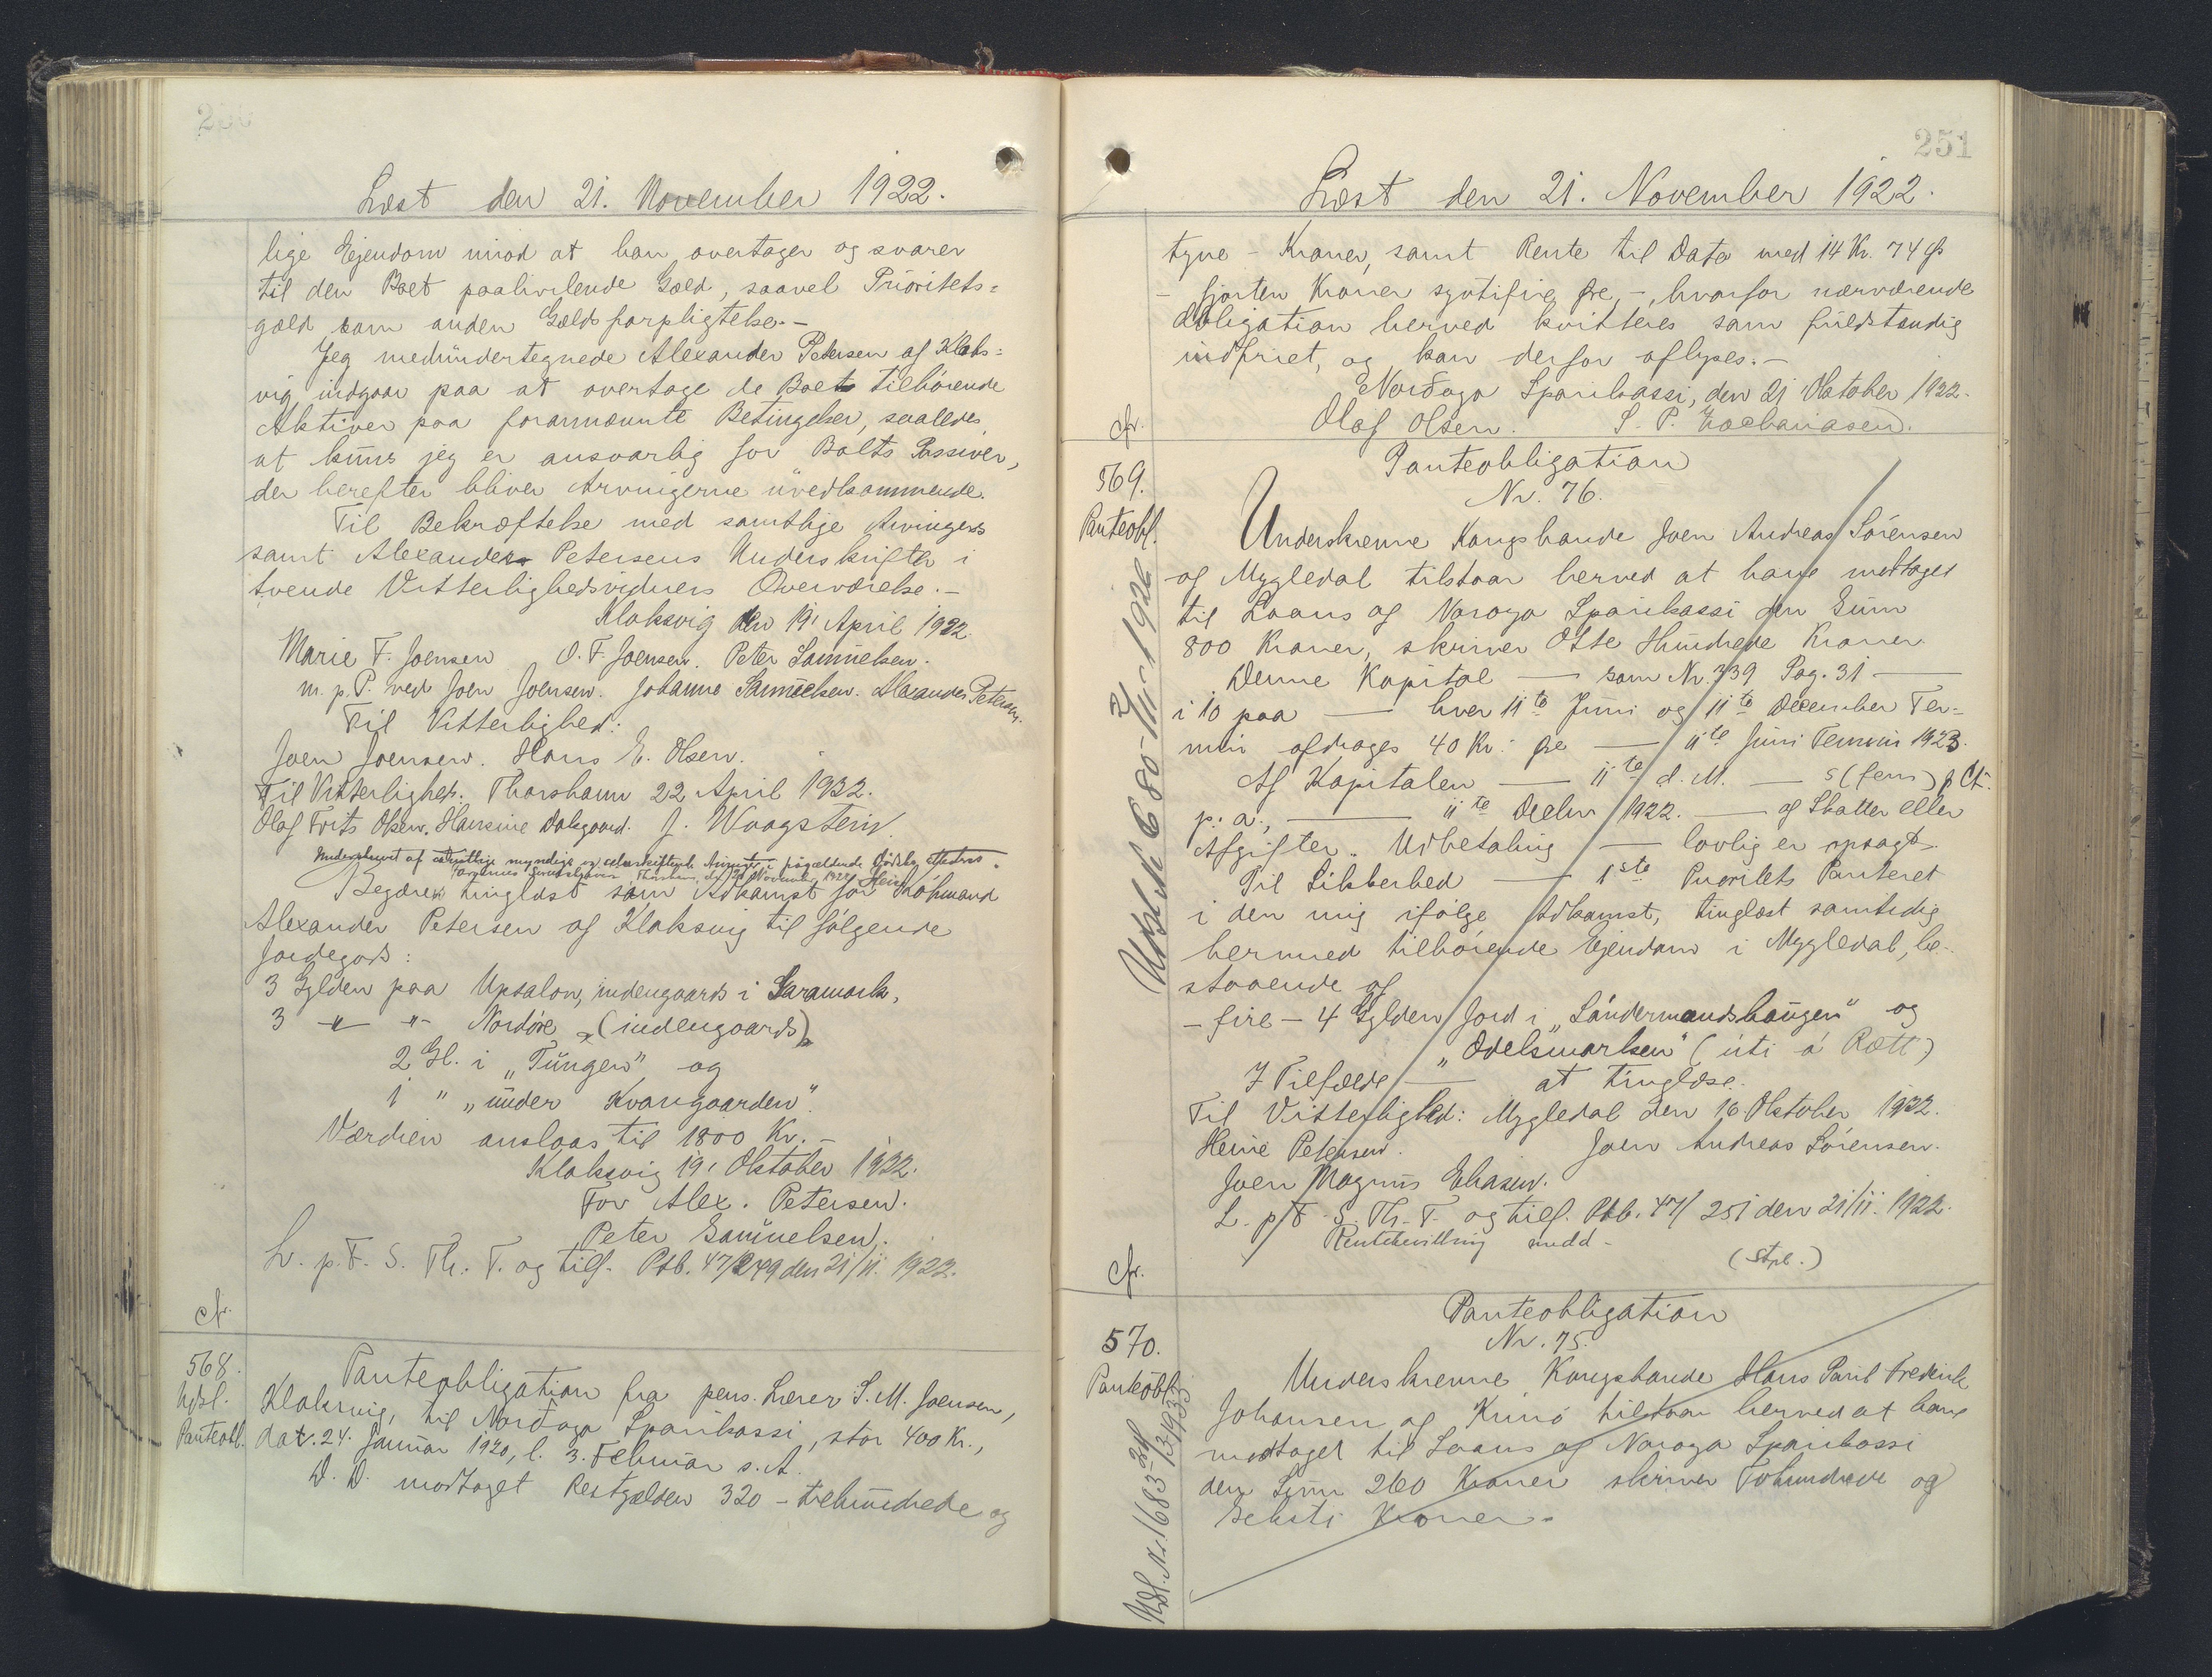 250
Læst den 21. November 1922.
lige Ejendom mod at han overtager og svarer
til den Boet paahvilende Gæld, saavel Prioritets=
gæld som anden Gældsforpligtelse.-
Jeg medundertegnede Alexander Petersen af Klaks=
vig indgaar paa at overtage de Boets tilhørende
Aktiver paa forannævnte Betingelser, saaledes
at kuns jeg er ansvarlig for Boets Passiver,
der herefter bliver Arvingerne uvedkommende.
Til Bekræftelse med samtlige Arvingers
samt Alexander Petersens Underskrifter i
tvende Vitterlighedsvidners Overværelse.-
Klaksvig den 19' April 1922.
Marie F. Joensen O. F. Joensen. Peter Samuelsen.
m. p. P. ved Joen Joensen. Johanne Samuelsen. Alexander Petersen.
Til Vitterlighed:
Joen Joensen. Hans E. Olsen.
Til Vitterlighed. Thorshavn 22 April 1922.
Olaf Frits Olsen. Hansine Dalsgaard. J. Waagstein.
Underskrevet af samtlige myndige og
Begæres tinglæst som Adkomst for Købmand
Alexander Petersen af Klaksvig til følgende
Jordegods:
3 Gylden paa Upsalon, indengaards i Saramark,
3 -"- "- Nordøre (indengaards)
2 Gl. i „Tungen" og
1 " „under Kvangaarden".
Værdien anslaas til 1800 Kr. -
Klaksvig 19' Oktober 1922.
For Alex. Petersen.
Peter Samuelsen.
L. p. F. S. Th. T. og tilf. Ptb. 47/249 den 21/11. 1922.
cfr.
568.
Udsl.
Panteobl.
Panteobligation fra pens. Lærer S. M. Joensen,
Klaksvig, til Norðoya Sparikassi, stor 400 Kr.,
dat. 24. Januar 1920, l. 3. Februar s. A.
D. D. modtaget Restgælden 320 - trehundrede og
251
Læst den 21. November 1922.
tyve - Kroner, samt Rente til Dato med 14 Kr. 74 Ø
- fjorten Kroner sytifire Øre -, hvorfor nærværende
Obligation herved kvitteres som fuldstændig
indfriet, og kan derfor aflyses.-
Norðoya Sparikassi, den 21 Oktober 1922.
Olaf Olsen. S. P. Zachariasen.
cfr.
569.
Panteobl.
Panteobligation
Nr. 76.
Underskrevne Kongsbonde Joen Andreas Sørensen
af Mygledal tilstaar herved at have modtaget
til Laans af Noroya Sparikassi den Sum
800 Kroner, skriver Otte Hundrede Kroner.
Denne Kapital — som Nr. 339 Pag. 31 —
i 10 paa — hver 11te Juni og 11te December Ter=
min afdrages 40 Kr. Øre — 11te Juni Termin 1923.
Af Kapitalen — 11te d. M. — 5 (fem) p Ct.
p. a., — 11te Decbr 1922. — af Skatter eller
Afgifter. Udbetaling — lovlig er opsagt.
Til Sikkerhed — 1ste Prioritets Panteret
i den mig ifølge Adkomst, tinglæst samtidig
hermed tilhørende Ejendom i Mygledal, be-
staaende af
- fire - 4 Gylden Jord i „Sándermandshaugen" og
„Odelsmarken" (úti á Rætt)
I Tilfælde — at tinglæse.
Til Vitterlighed: Mygledal den 16 Oktober 1922.
Heine Petersen. Joen Andreas Sørensen.
Joen Magnus Eliasen.
L. p. F. S. Th. T. og tilf. Ptb. 47/251 den 21/11. 1922.
Rentebevilling medd -
(Stpl.)
cfr.
570.
Panteobl.
Panteobligation
Nr. 75.
Underskrevne Kongsbonde Hans Paul Frederik
Johansen af Kunø tilstaar herved at have
modtaget til Laans af Noroya Sparikassi
den Sum 260 Kroner skriver Tohundrede og
Seksti Kroner.